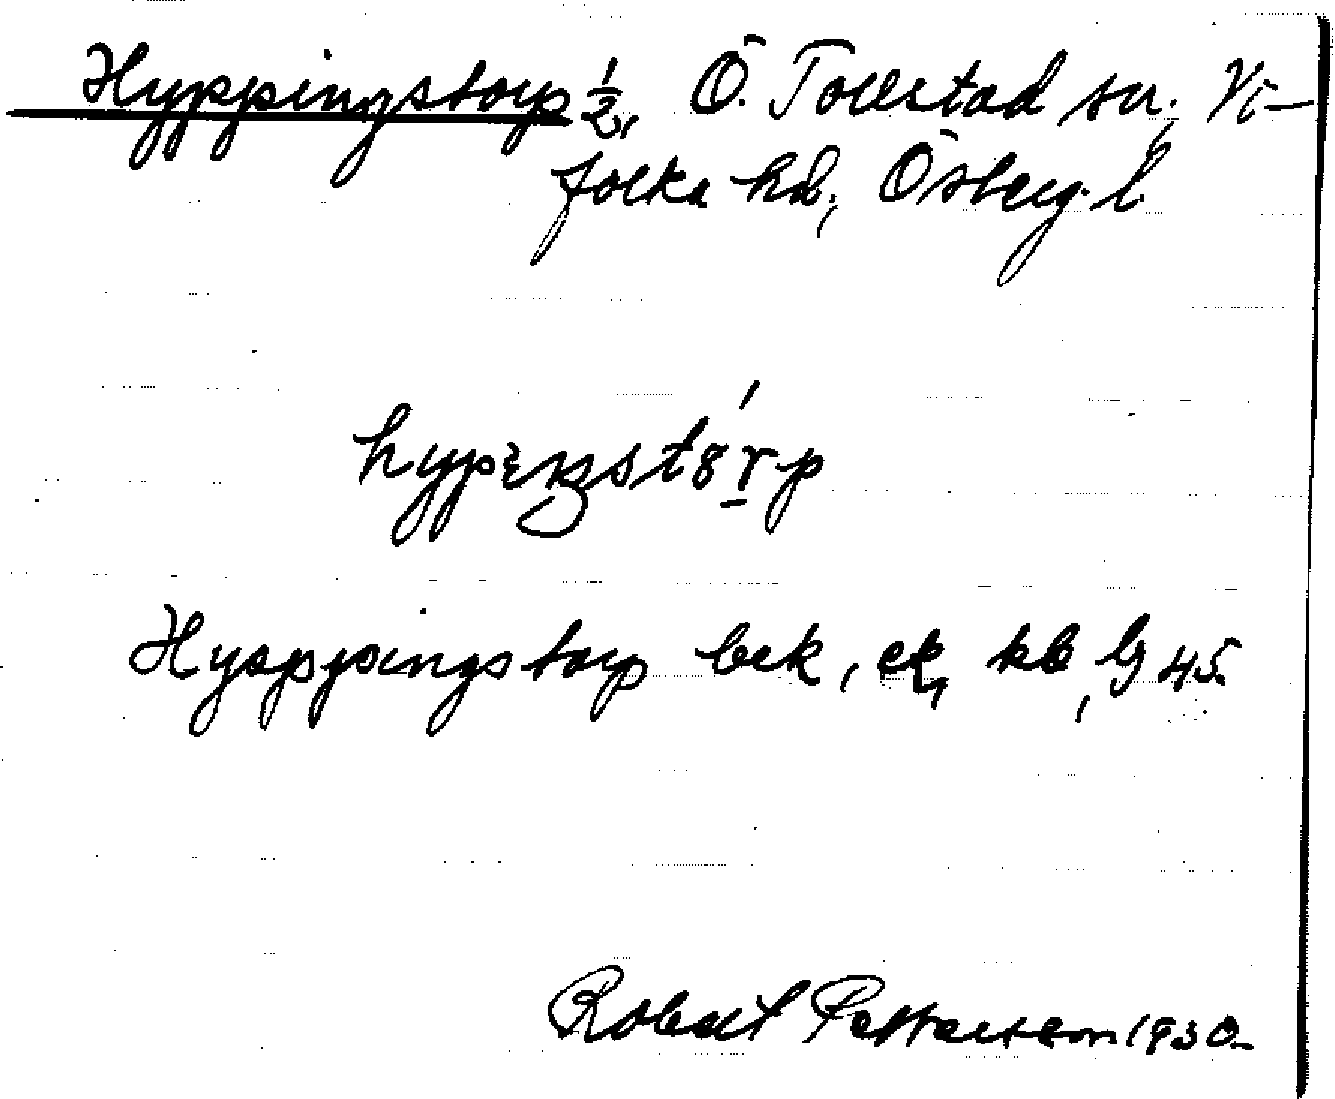 Hyppingstorp ½, Ö. Tollstad sn, Vi-
folka hd, Österg. l.
Hyppingstorp bek, ek, kb, G 45.
Robert Pettersson 1930.